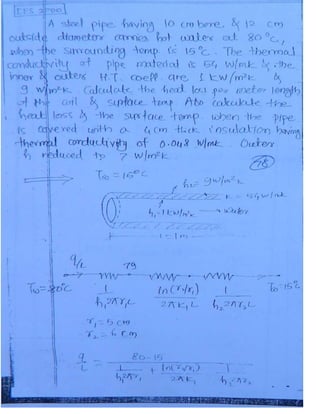 [IES 2000]
A steel pipe having 10 cm bore & 12 cm
outside diameter carries hot water at 80°C,
when the surrounding temp. is 15°C. The thermal
conductivity of pipe material is 54 W/mK & the
inner & outer H.T. coeff. are 1 kW/m²K &
9 W/m²K. Calculate the heat loss per meter length
of the coil & surface temp. Also calculate the
heat loss & the surface temp. when the pipe
is covered with a 4 cm thick insulation having
thermal conductivity of 0.048 W/mK. Outer
h reduced to 7 W/m²K.
T∞ = 15°C
h₀ = 9 W/m²K
K = 54 W/mK
h₁ = 1 kW/m²K → water
L = 1m
q/L
T∞ = 80°C
1/(h₁2πr₁L) ln(r₂/r₁)/(2πK₁L) 1/(h₂2πr₂L)
T∞ = 15°C
r₁ = 5 cm
r₂ = 6 cm
q/L = (80-15)/(1/(h₁2πr₁) + ln(r₂/r₁)/(2πK₁) 1/(h₂2πr₂))